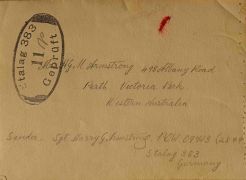 Stalag 383
11
Geprüft
M. Armstrong 498 Albany Road
Perth Victoria Park
Western Australia
Sender. Sgt Harry G. Armstrong. P.O.W.
Stalag 383
Germany